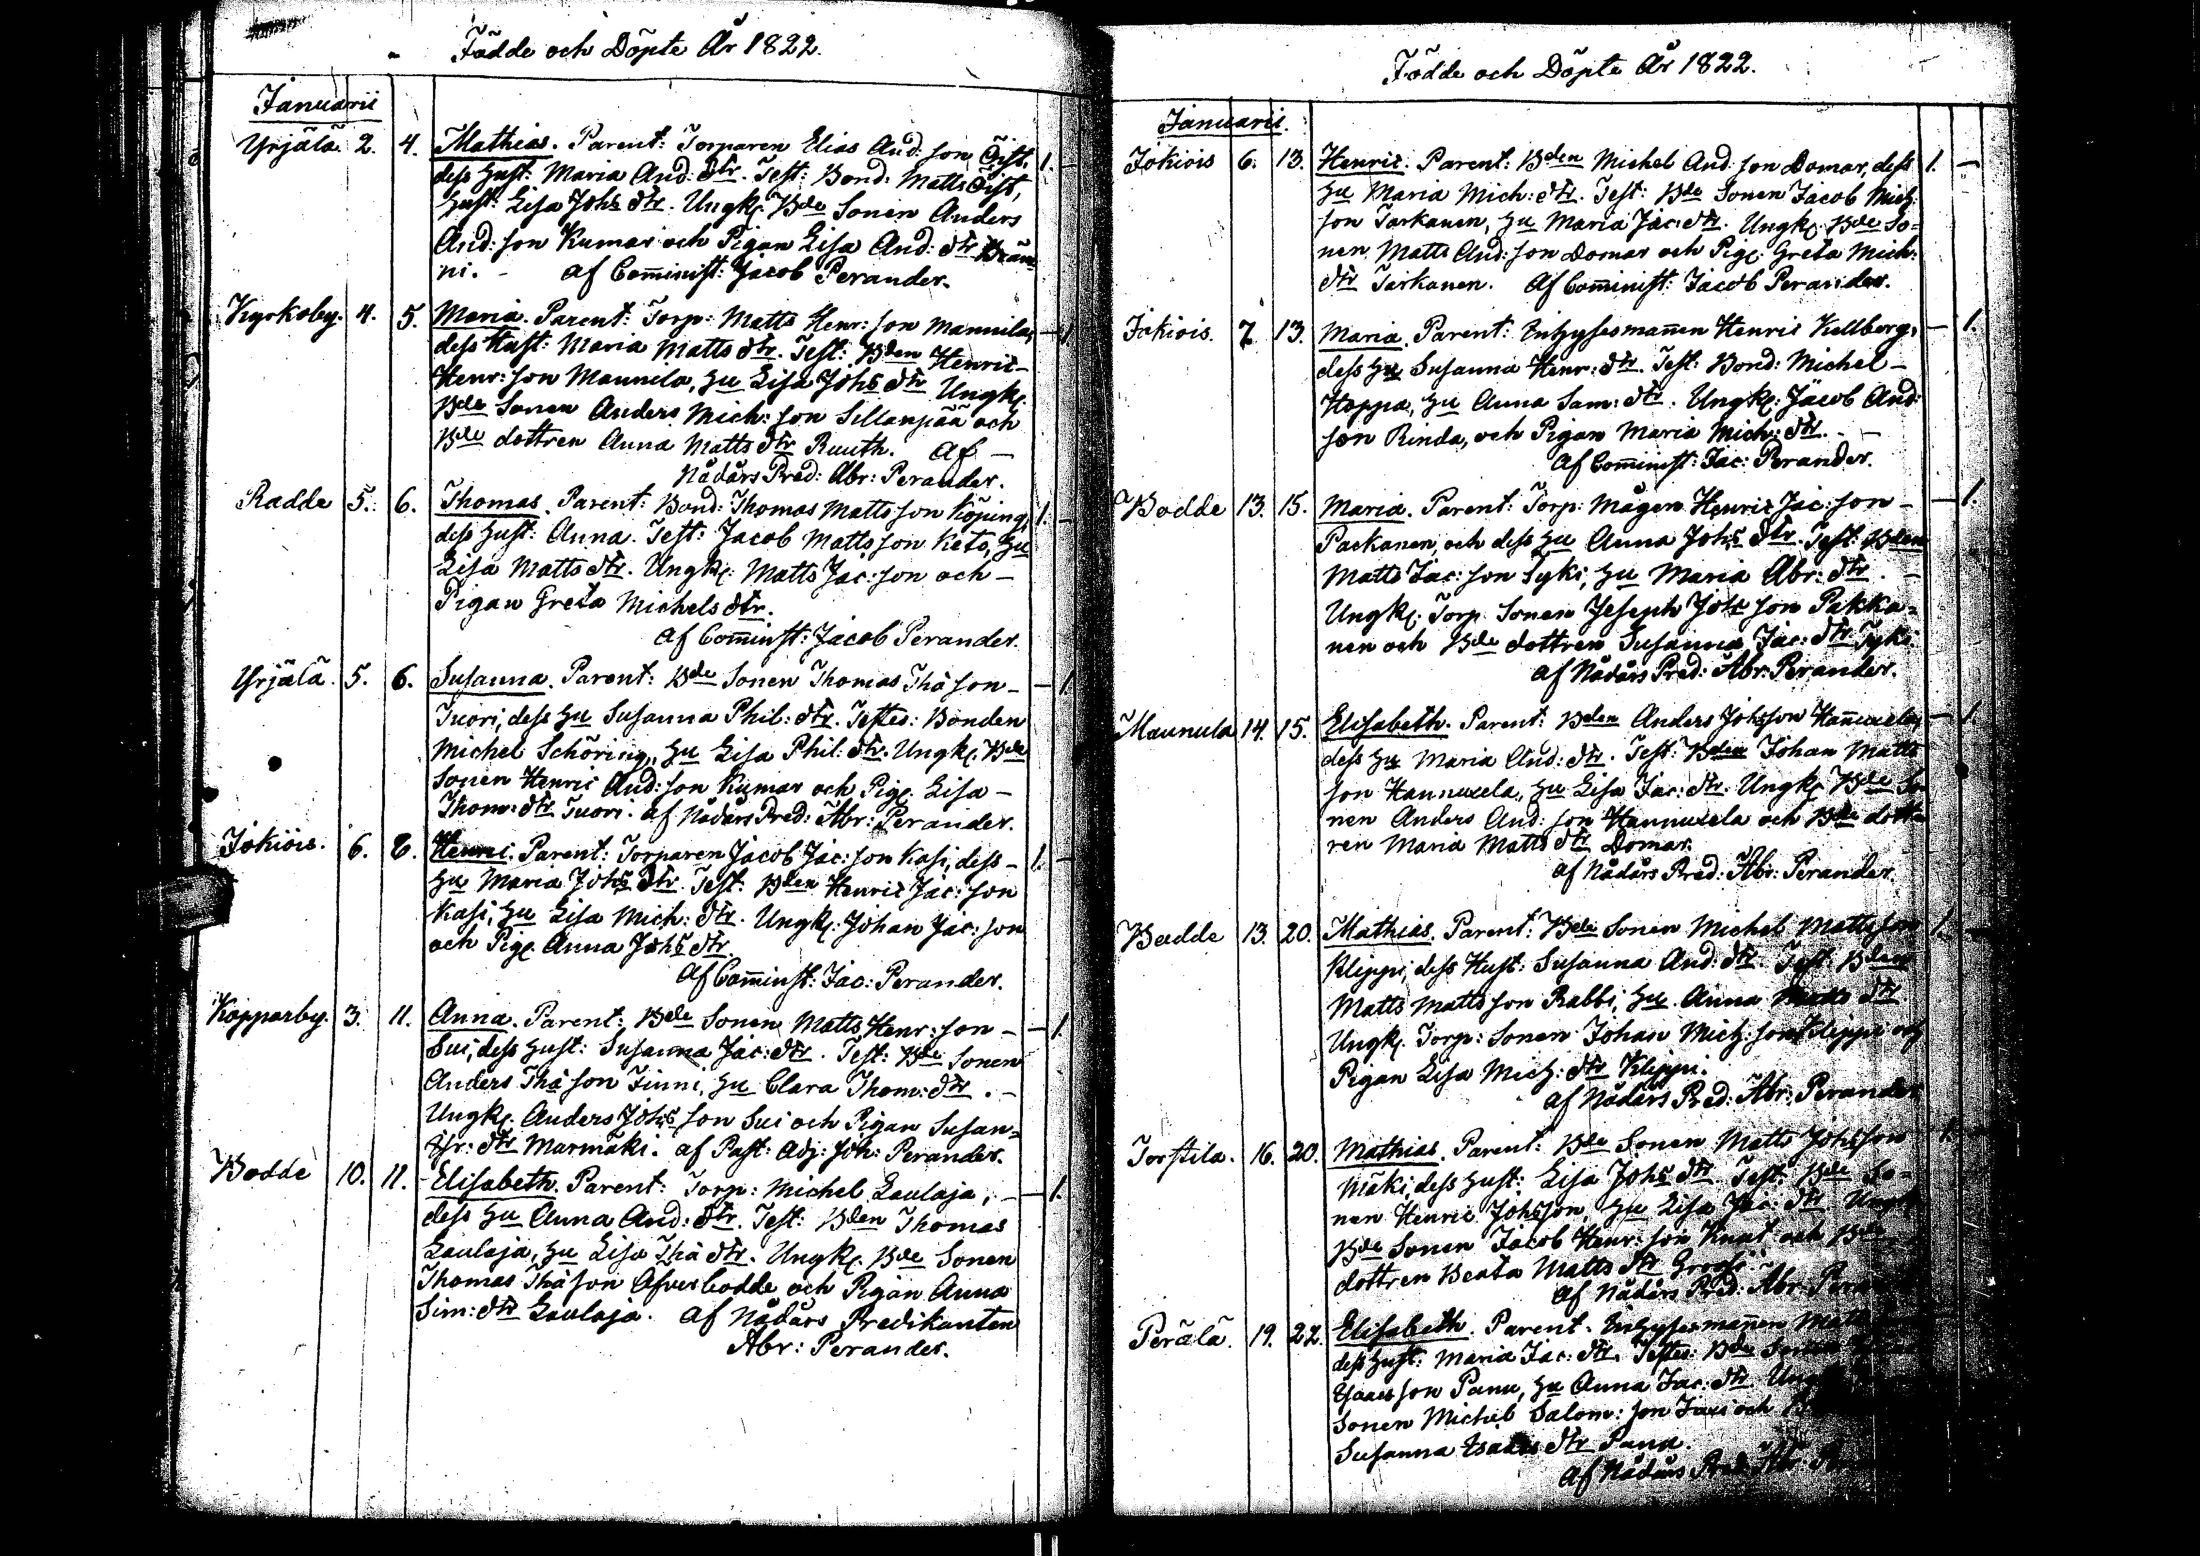 Födde och Döpte År 1822.
Januarii
Yrjälä 2. 4. Mathias. Parent: Torparen Elias And:son Öist, 1. -
dess Hust: Maria And:dtr. Test: Bond: Matts Öist,
Hust: Lisa Johs dtr. Ungk: Bde Sonen Anders
And:son Kumar och Pigan Lisa And:dtr Brän
ni. - af Com̄inist: Jacob Perander.
Kyrkoby. 4. 5. Maria. Parent: Torp: Matts Henr:son Mannila, - 1
dess Hust: Maria Matts dtr. Test: Bden Henric
Henr:son Mannila, Hu Lisa Johs dtr Ungk:
Bde Sonen Anders Mich:son Sillanpää och
Bde dottren Anna Matts dtr Ruuth. Af -
Nådårs Pred: Abr: Perander.
Radde 5. 6. Thomas. Parent: Bond: Thomas Mattsson Köping, 1. -
dess Hust: Anna. Test: Jacob Mattsson Keto, Hu
Lisa Matts dtr. Ungk: Matts Jac:son och -
Pigan Greta Michels dtr.
af Com̄inst: Jacob Perander.
Yrjälä. 5. 6. Susanna. Parent: Bde Sonen Thomas Thåson - - 1.
Tuori, dess Hu Susanna Phil:dtr. Testes: Bonden
Michel Schöring, Hu Lisa Phil:dtr. Ungk: Bde
Sonen Henric And:son Kumar och Pig: Lisa -
Thom:dtr Tuori. af Nådårs Pred: Abr: Perander.
Jokiois. 6. 8. Henric. Parent: Torparen Jacob Jac:son Kasi, dess - 1. -
Hu Maria Johs dtr. Test: Bden Henric Jac:son
Kasi, Hu Lisa Mich:dtr. Ungk: Johan Jac:son
och Pig: Anna Johs dtr
Af Com̄inst: Jac: Perander.
Kopparby. 3. 11. Anna. Parent: Bde Sonen Matts Henr:son - - 1.
Sui, dess Hust: Susanna Jac:dtr. Test: Bde Sonen
Anders Thåson Finni, Hu Clara Thom:dtr. -
Ungk: Anders Johs son Sui och Pigan Susan=
Gr:dtr Marmäki. af Past: Adj: Joh: Perander.
Bodde 10. 11. Elisabeth. Parent: Torp: Michel Laulaja, - - 1.
dess Hu Anna And:dtr. Test: Bden Thomas
Laulaja, Hu Lisa Thå dtr. Ungk: Bde Sonen
Thomas Thåson Öfverbodde och Pigan Anna
Sim:dtr Laulaja. Af Nådårs Predikanten
Abr: Perander.
Födde och Döpte År 1822.
Januarii.
Jokiois 6. 13. Henric. Parent: Bden Michel And:son Domar, dess 1. -
Hu Maria Mich:dtr. Test: Bde Sonen Jacob Mich:
son Tarkanen, Hu Maria Jac:dtr. Ungk: Bde So=
nen Matts And:son Domar och Pig: Greta Mich:
dtr Tarkanen. Af Com̄inist: Jacob Perander.
Jokiois. 7. 13. Maria. Parent: Inhysesman̄en Henric Kellberg, - 1.
dess Hu Susanna Henr:dtr. Test: Bond: Michel -
Hoppa, Hu Anna Sam:dtr. Ungk: Jacob And:
son Rinda, och Pigan Maria Mich:dtr. - -
Af Com̄inist: Jac: Perander.
Bodde 13. 15. Maria. Parent: Torp: Mågen Henric Jac:son - - 1.
Packanen, och dess Hu Anna Johs dtr. Test: Bden
Matts Jac:son Syki, Hu Maria Abr:dtr. -
Ungk: Torp Sonen Joseph Johs son Pakka=
nen och Bde dottren Susanna Jac:dtr Syki.
af Nådårs Pred: Abr: Perander.
Maunula 14. 15. Elisabeth. Parent: Bden Anders Johsson Han̄uxela, - 1.
dess Hu Maria And:dtr. Test: Bden Johan Matts
son Hannuxela, Hu Lisa Jac:dtr. Ungk: Bde So
nen Anders And:son Hannuxela och Bde dott=
ren Maria Matts dtr Domar.
af Nådårs Pred: Abr: Perander.
Badde 13. 20. Mathias. Parent: Bde Sonen Michel Mattsson 1. -
Klippi, dess Hust: Susanna And:dtr. Test: Bden
Matts Mattsson Rabbi, Hu Anna Matts dtr
Ungk: Torp: Sonen Johan Mich:son Klippi och
Pigan Lisa Mich:dtr Klippi.
af Nådårs Pred: Abr: Perander
Torstila. 16. 20. Mathias. Parent: Bde Sonen Matts Johsson 1. -
Mäki, dess Hust: Lisa Johs dtr Test: Bde So=
nen Henric Johsson Hu Lisa Jac:dtr Ungk:
Bde Sonen Jacob Henr:son Knut och Bde
dottren Beata Matts dtr Grossi
af Nådårs Pred: Abr: Peran
Perälä. 19. 22. Elisabeth. Parent. Inhysesman̄en Matts
dess Hust: Maria Jac:dtr. Testes: Bde Sonen
Isaacsson Panu, Hu Anna Jac:dtr Ung
Sonen Michel Salom:son och
Susanna Isaacs dtr Panu.
af Nådårs Pred: Abr: